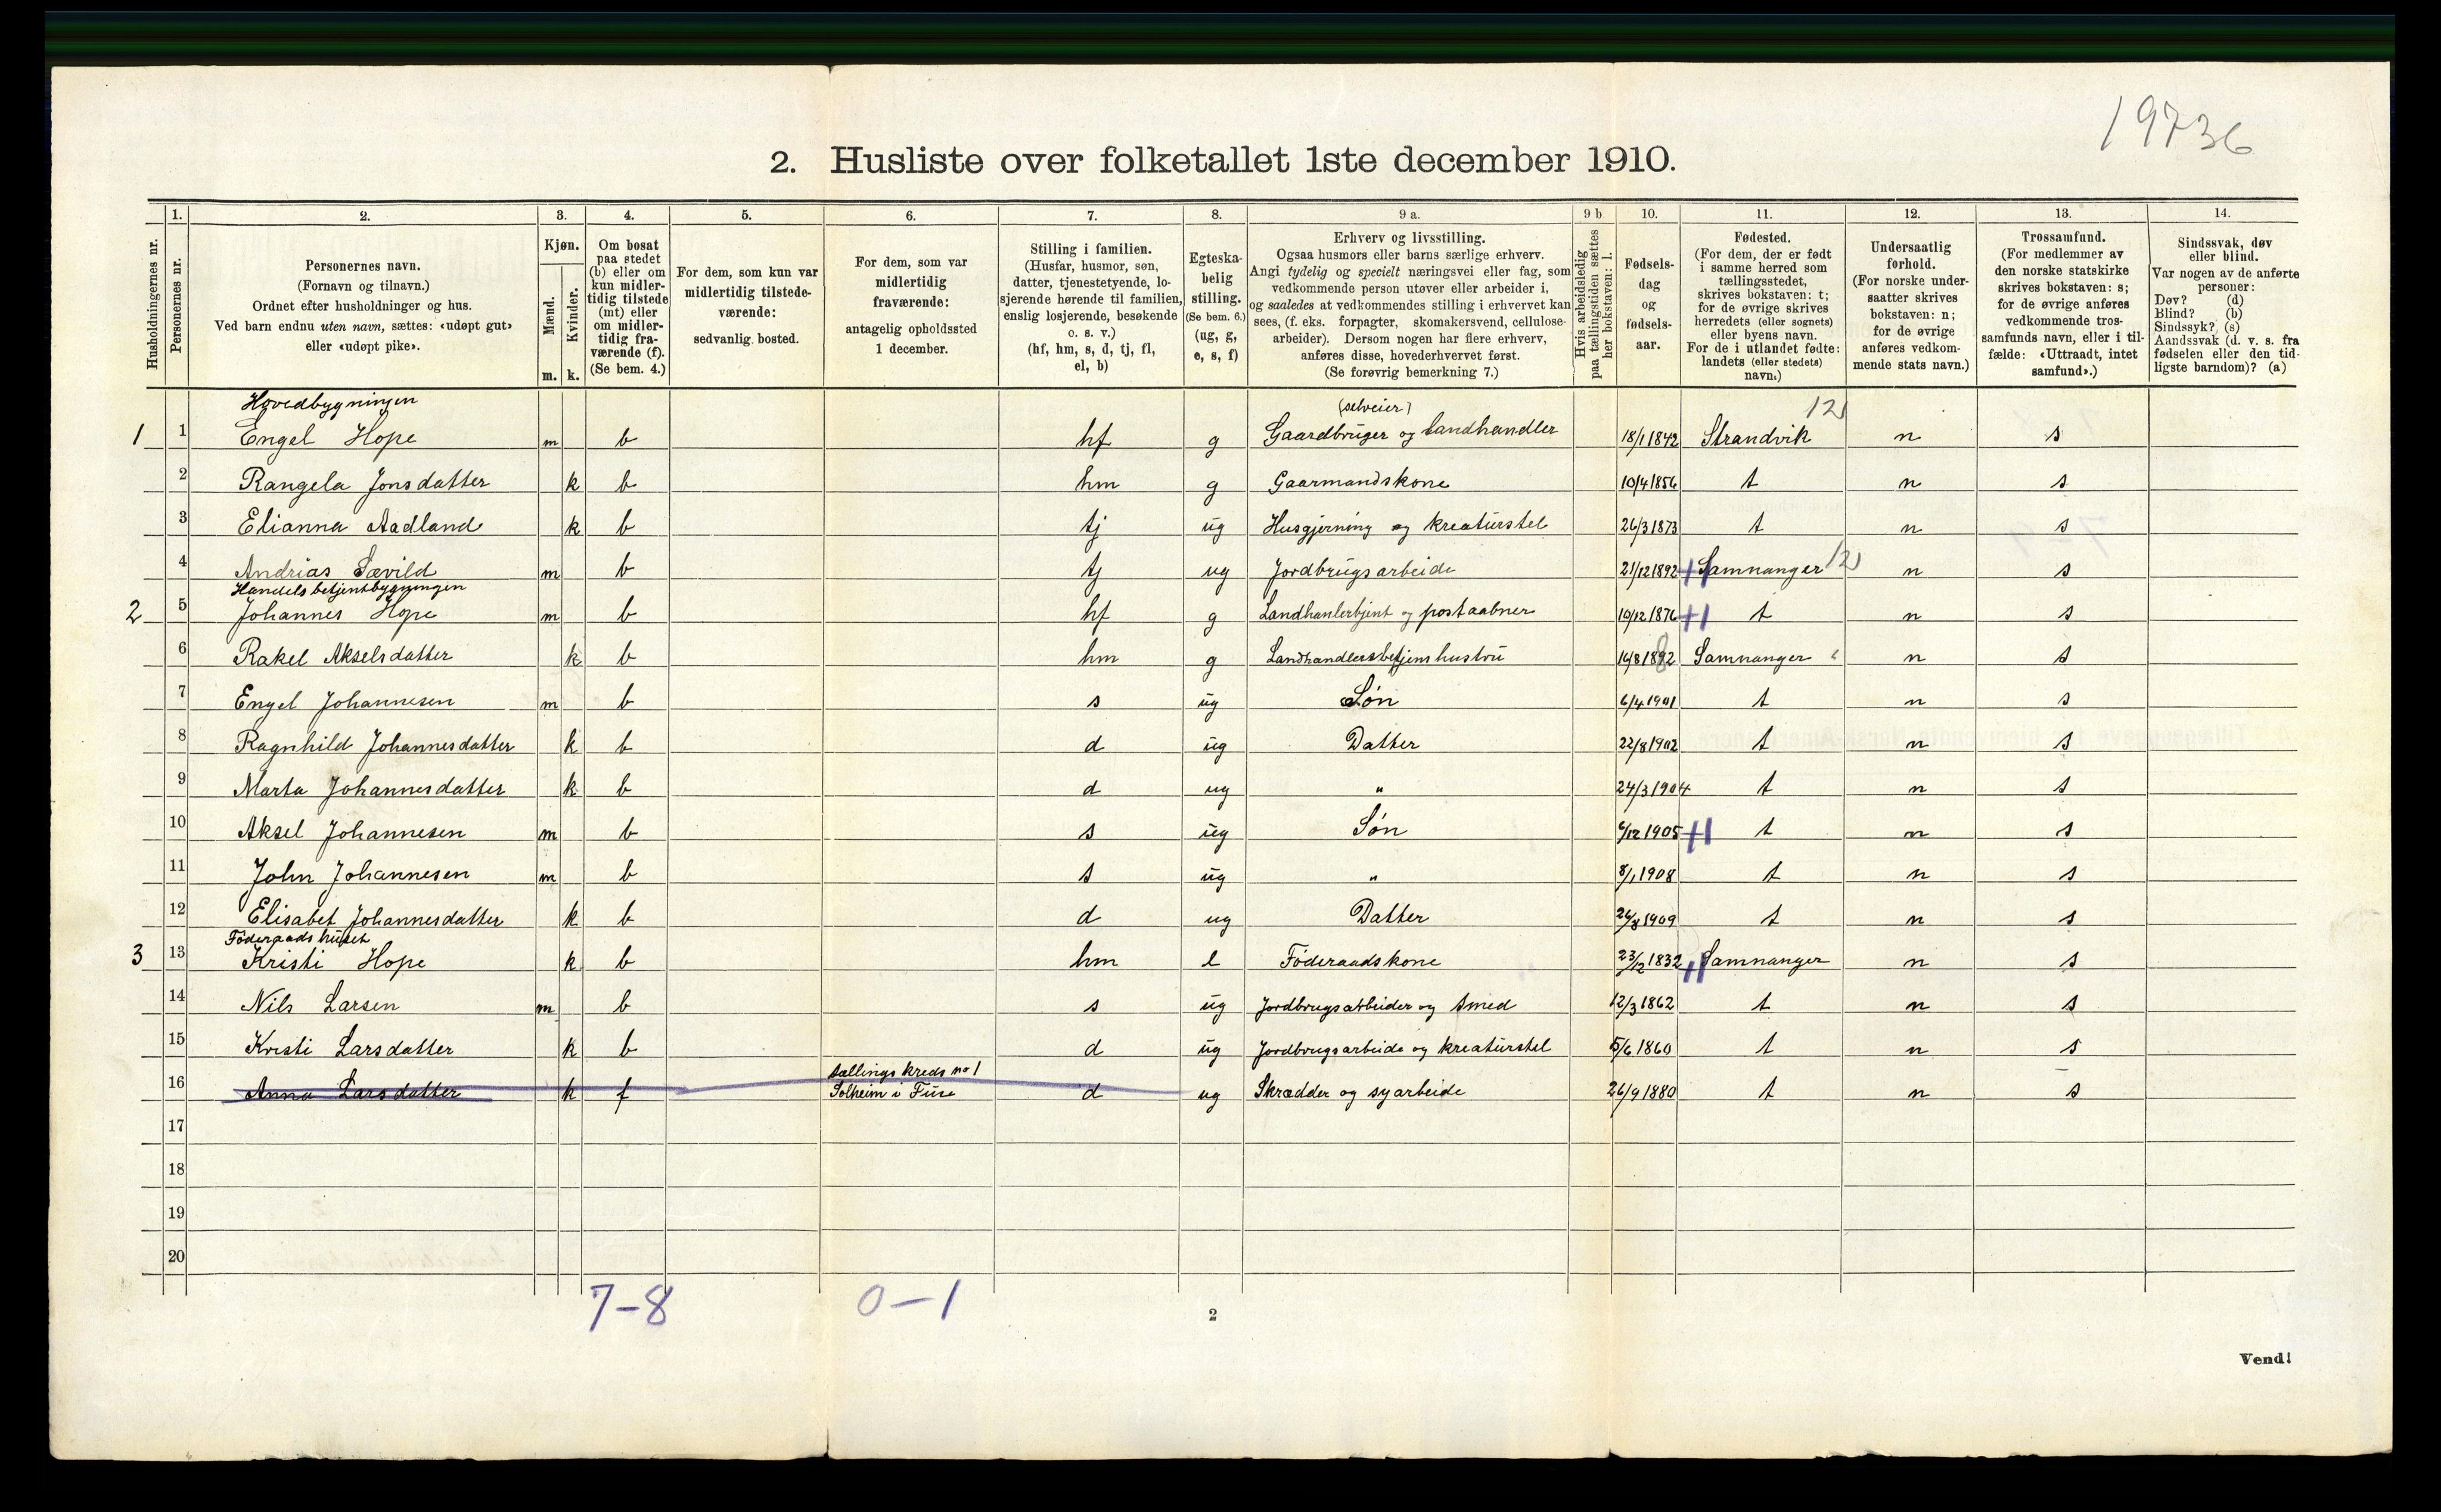 19736
2. Husliste over folketallet 1ste december 1910.
1. 2. 3. 4. 5. 6. 7. 8. 9 a. 9 b 10. 11. 12. 13. 14.
Husholdningernes nr.
Personernes nr.
Personernes navn.
(Fornavn og tilnavn.)
Ordnet efter husholdninger og hus.
Ved barn endnu uten navn, sættes: «udøpt gut»
eller «udøpt pike».
Kjøn.
Mænd.
Kvinder.
m. k.
Om bosat
paa stedet
(b) eller om
kun midler-
tidig tilstede
(mt) eller
om midler-
tidig fra-
værende (f).
(Se bem. 4.)
For dem, som kun var
midlertidig tilstede-
værende:
sedvanlig bosted.
For dem, som var
midlertidig
fraværende:
antagelig opholdssted
1 december.
Stilling i familien.
(Husfar, husmor, søn,
datter, tjenestetyende, lo-
sjerende hørende til familien,
enslig losjerende, besøkende
o. s. v.)
(hf, hm, s, d, tj, fl,
el, b)
Egteska-
belig
stilling.
(Se bem. 6.)
(ug, g,
e, s, f)
Erhverv og livsstilling.
Ogsaa husmors eller barns særlige erhverv.
Angi tydelig og specielt næringsvei eller fag, som
vedkommende person utøver eller arbeider i,
og saaledes at vedkommendes stilling i erhvervet kan
sees, (f. eks. forpagter, skomakersvend, cellulose-
arbeider). Dersom nogen har flere erhverv,
anføres disse, hovederhvervet først.
(Se forøvrig bemerkning 7.)
Hvis arbeidsledig
paa tællingstiden sættes
her bokstaven: l.
Fødsels-
dag
og
fødsels-
aar.
Fødested.
(For dem, der er født
i samme herred som
tællingsstedet,
skrives bokstaven: t;
for de øvrige skrives
herredets (eller sognets)
eller byens navn.
For de i utlandet fødte:
landets (eller stedets)
navn.)
Undersaatlig
forhold.
(For norske under-
saatter skrives
bokstaven: n;
for de øvrige
anføres vedkom-
mende stats navn.)
Trossamfund.
(For medlemmer av
den norske statskirke
skrives bokstaven: s;
for de øvrige anføres
vedkommende tros-
samfunds navn, eller i til-
fælde: «Uttraadt, intet
samfund».)
Sindssvak, døv
eller blind.
Var nogen av de anførte
personer:
Døv? (d)
Blind? (b)
Sindssyk? (s)
Aandssvak (d. v. s. fra
fødselen eller den tid-
ligste barndom)? (a)
Hovedbygningen (selveier) 12
1 1 Engel Hope m b hf g Gaardbruger og landhandler 18/1 1842 Strandvik n s
2 Rangela Jonsdatter k b hm g Gaarmandskone 10/4 1856 t n s
3 Elianna Aadland k b tj ug Husgjerning og kreaturstel 26/3 1873 t n s
4 Andrias Sævild m b tj ug Jordbrugsarbeide 21/12 1892 Samnanger 12 n s
Handelsbetjentbygningen
2 5 Johannes Hope m b hf g Landhanlerbjent og postaabner 10/12 1876 t n s
6 Rakel Akselsdatter k b hm g Landhandlersbetjens hustru Samnanger n s
7 Engel Johannesen m b s ug Søn 6/4 1901 t n s
8 Ragnhild Johannesdatter k b d ug Datter 22/8 1902 t n s
9 Marta Johannesdatter k b d ug " 24/3 1904 t n s
10 Aksel Johannesen m b s ug Søn 6/12 1905 t n s
11 John Johannesen m b s ug " 8/1 1908 t n s
12 Elisabet Johannesdatter k b d ug Datter 26/8 1909 t n s
Föderaadshuset
3 13 Kristi Hope k b hm e Föderaadskone 23/12 1832 Samnanger n s
14 Nils Larsen m b s ug Jordbrugsarbeider og smed 12/3 1862 t n s
15 Kristi Larsdatter k b d ug Jordbrugsarbeide og kreaturstel 5/6 1860 t n s
tællings kreds no 1
16 Anna Larsdatter k f Solheim i Fuse d ug Skrædder og syarbeide 26/9 1880 t n s
17
18
19
20
7-8 0-1
2
Vend!